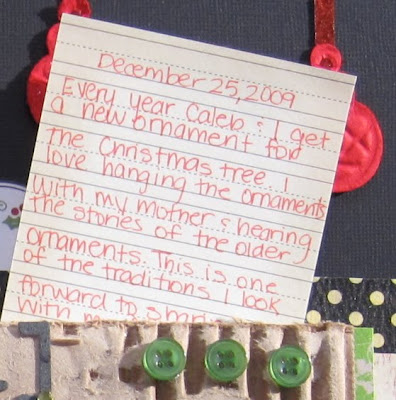 December 25, 2009
Every year Caleb & I get
a new ornament for
the Christmas tree. I
love hanging the ornaments
with my mother & hearing
the stories of the older
ornaments. This is one
of the traditions I look
forward to
with